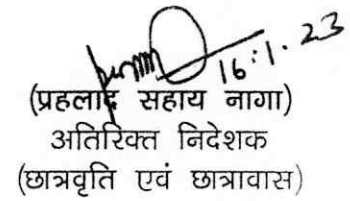 16.1.23
(प्रहलाद सहाय नागा)
अतिरिक्त निदेशक
(छात्रवृति एवं छात्रावास)